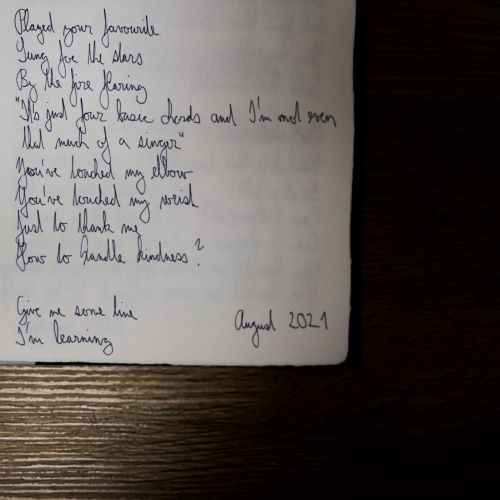 Played your favourite
Sung for the stars
By the fire flaring
"It's just four basic chords and I'm not even
that much of a singer"
You've touched my elbow
You've touched my wrist
Just to thank me
How to handle kindness?
Give me some time
I'm learning
August 2021